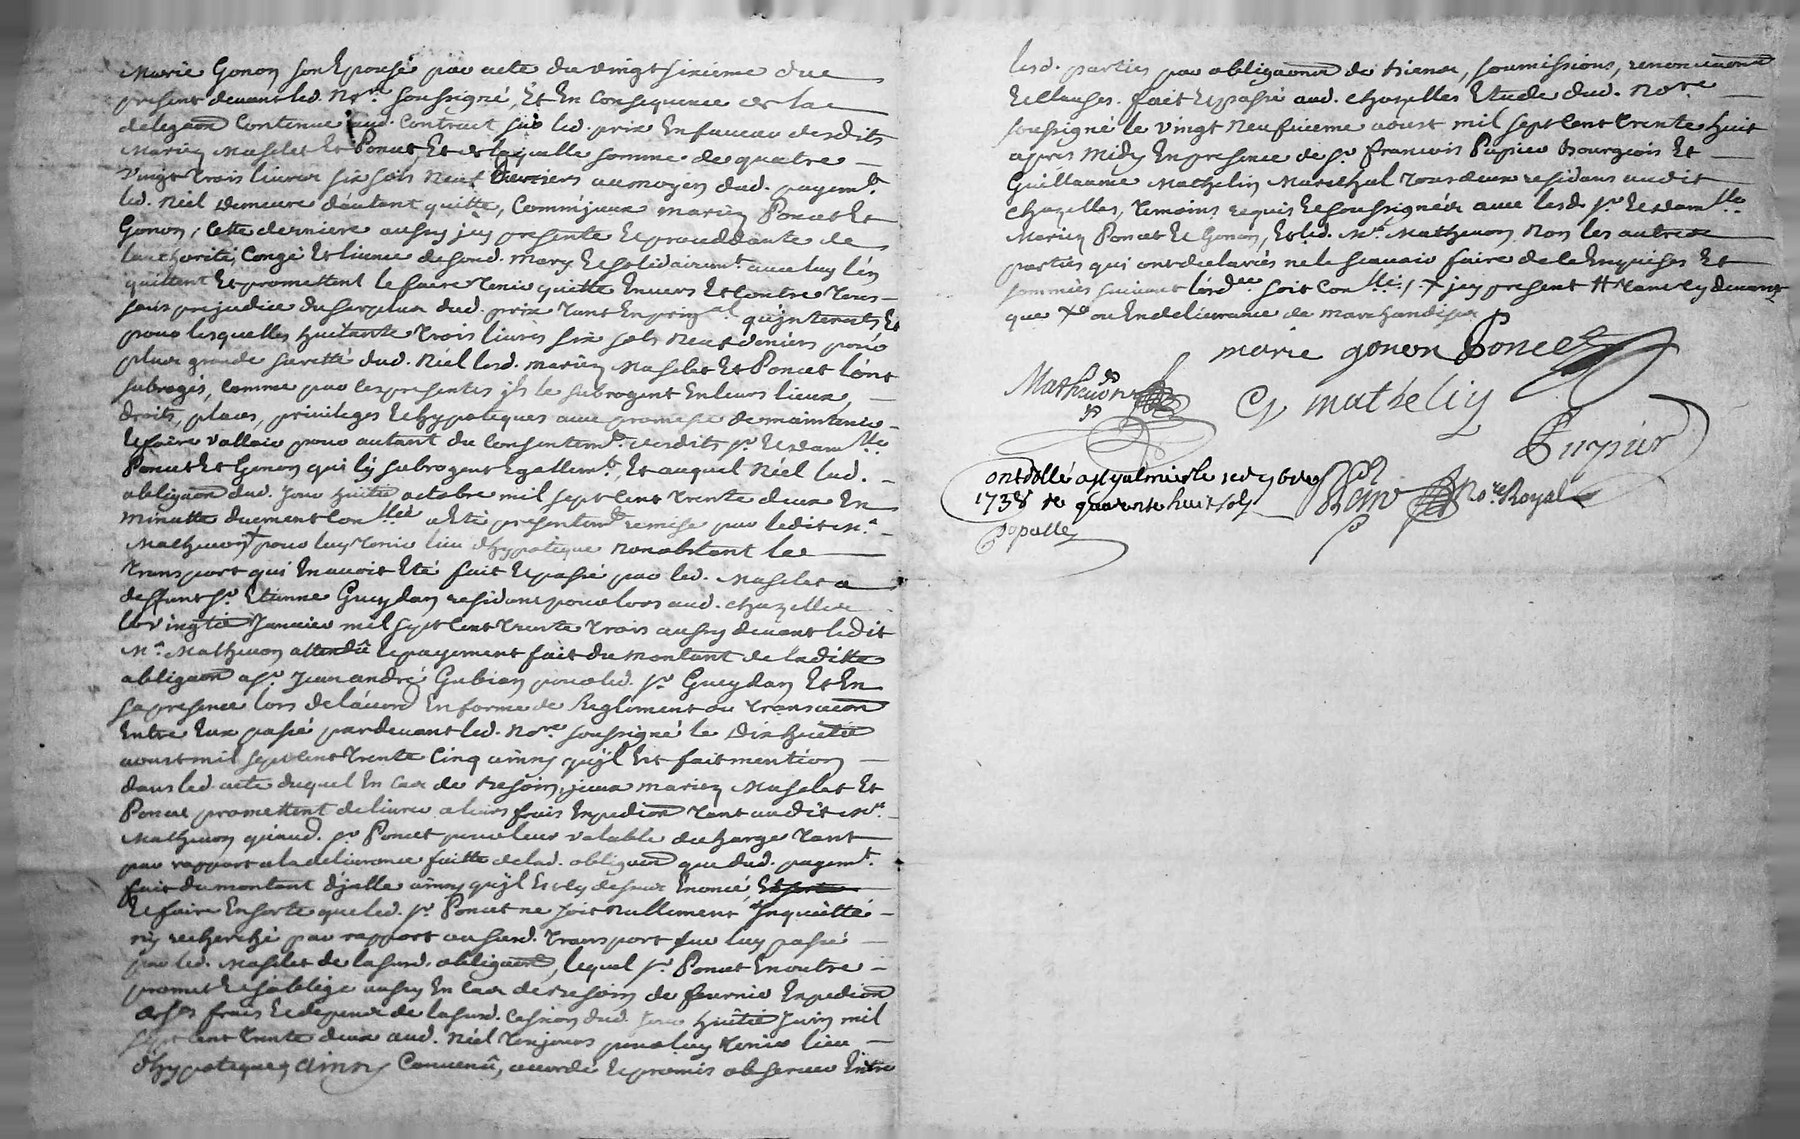 Marie Gonon son Epouse par acte du vingt sixieme due
present devant led. Nore. soussigné, Et En Consequence de la
delegaon Contenue aud. Contract sur led. prix En faveur desdits
Mariez Maselet Et Poncet, Et de laquelle somme de quatre
vingt trois livres six sols neuf deniers au moyen dud. payemt.
led. Niel demeure d'autant quitte, Comm' jeux mariez Poncet Et
Gonon, Cette derniere aussy jcy presente Et proceddante de
l'authorité, Congé Et licence de sond. mary Et solidairemt. avec luy l'en
quittent Et promettent le faire tenir quitte Envers Et Contre tous
sans prejudice du surplus dud. prix tant En prinal. qu'jnterests Et
pour lesquelles huitante trois livres six sols neuf deniers pour
plus grande suretté dud. Niel lesd. mariez Maselet Et Poncet l'ont
subrogés, comme par ces presentes jls le subrogent En leurs lieux,
droits, places, privileges Et hypoteques avec promesse de maintenir
Et faire valloir pour autant du Consentemt. desdits sr. Et damlle.
Poncet Et Gonon qui l'y subrogent Egallemt. Et auquel Niel lad.
obligaon dud. jour huitie octobre mil sept Cent trente deux En
minutte duement Conllée a Eté presentemt. remise par ledit Me.
Mathevon pour luy tenir lieu d'hypoteque nonobstant le
transport qui En avoit Eté fait Et passé par led. Maselet a
deffunt sr. Etienne Gueydan residant pour lors aud. Chazelles
le vingtie Janvier mil sept Cent trente trois aussy devant ledit
Me. Mathevon attendû le payement fait du montant de laditte
obligaon a sr. Jean andré Gubian pour led. sr. Gueydan Et En
sa presence lors de l'acord En forme de Reglement ou transacon
Entre Eux passé pardevant led. Nore. soussigné le dix huitie
aoust mil sept Cent trente Cinq ainsy qu'jl Est fait mention
dans led. acte duquel En Cas de besoin, jceux mariez Maselet Et
Poncet promettent delivrer a leurs frais Expedion tant audit Me.
Mathevon qu'aud. sr. Poncet pour leur valable decharge tant
par rapport a la delivrance faitte de lad. obligaon que dud. payemt.
fait du montant d'jcelle ainsy qu'jl Est cy dessus Enoncé,
Et faire En sorte que led. sr. Poncet ne soit nullement Jnquietté
ny recherché par rapport au susd. transport sur luy passé
par led. Maselet de la susd. obligaon, lequel sr. Poncet En outre
promet Et s'oblige aussy En Cas de besoin de fournir Expedion
a ses frais Et depens de la susd. Cession dud. jour huitie Juin mil
sept Cent trente deux aud. Niel toujours pour luy tenir lieu
d'hypoteque, ainsy Convenû, accordé Et promis observer Entre
lesd. parties par obligaons de biens, soumissions, renonciaons
Et Clauses. fait Et passé aud. Chazelles Etude dud. Nore.
soussigné le vingt neufvieme aoust mil sept Cent trente huit
apres Midy En presence de sr. francois Pupier bourgeois Et
Guillaume Mathelin Marechal tous deux residans audit
Chazelles, temoins requis Et soussignés avec lesd. sr. Et damlle.
Mariez Poncet Et Gonon, Et led. Me. Mathevon Non les autres
parties qui ont declarés ne le scavoir faire de ce Enquises Et
sommés suivant l'ordce. soit Conllé. / + jcy present # tant cy devant
que
ou En delivrance de marchandises
marie gonon Poncet
Mathevon
G mathelin
Pupier
Controllé a st galmier le
1738 re quarente huit sols
Nore. Royal